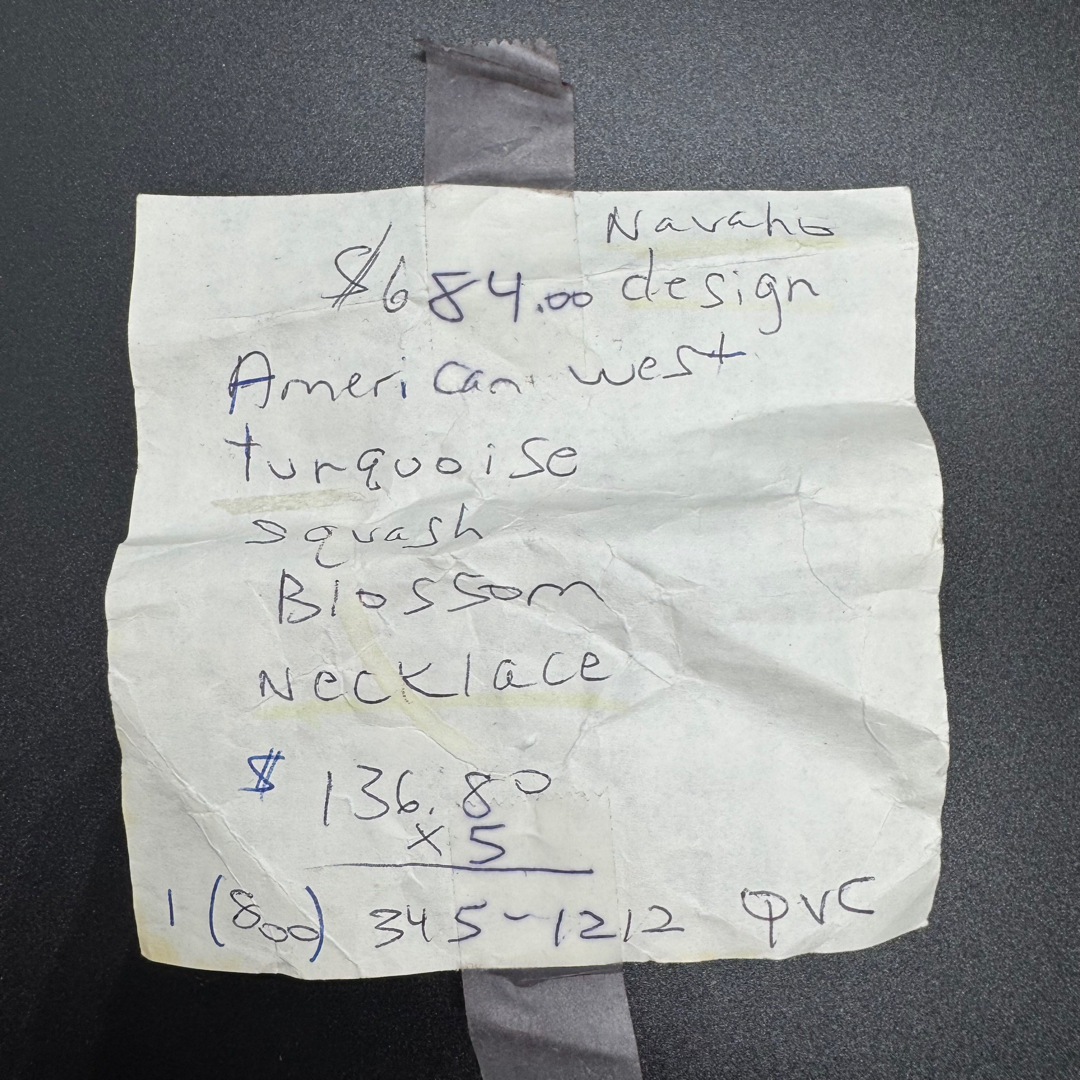 Navaho
$684.00 design
American west
turquoise
squash
Blossom
Necklace
$ 136.80
x 5
1 (800) 345-1212 QVC